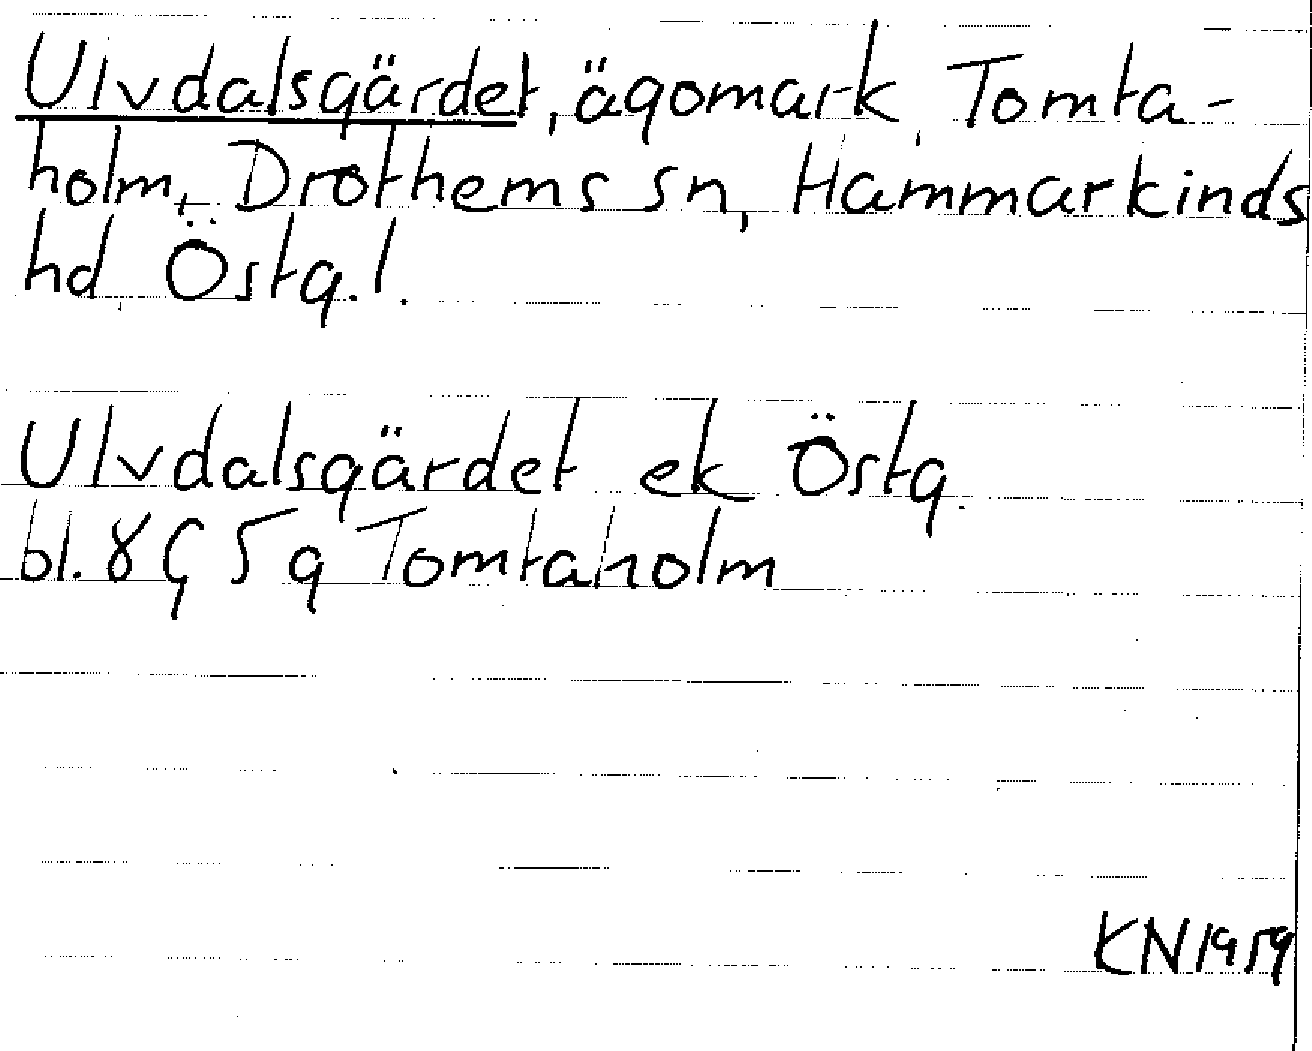 Ulvdalsgärdet, ägomark, Tomta-
holm, Drothems sn, Hammarkinds
hd, Östg.l.
Ulvdalsgärdet ek Östg.
bl. 8 G 5 g Tomtaholm
KN 1959